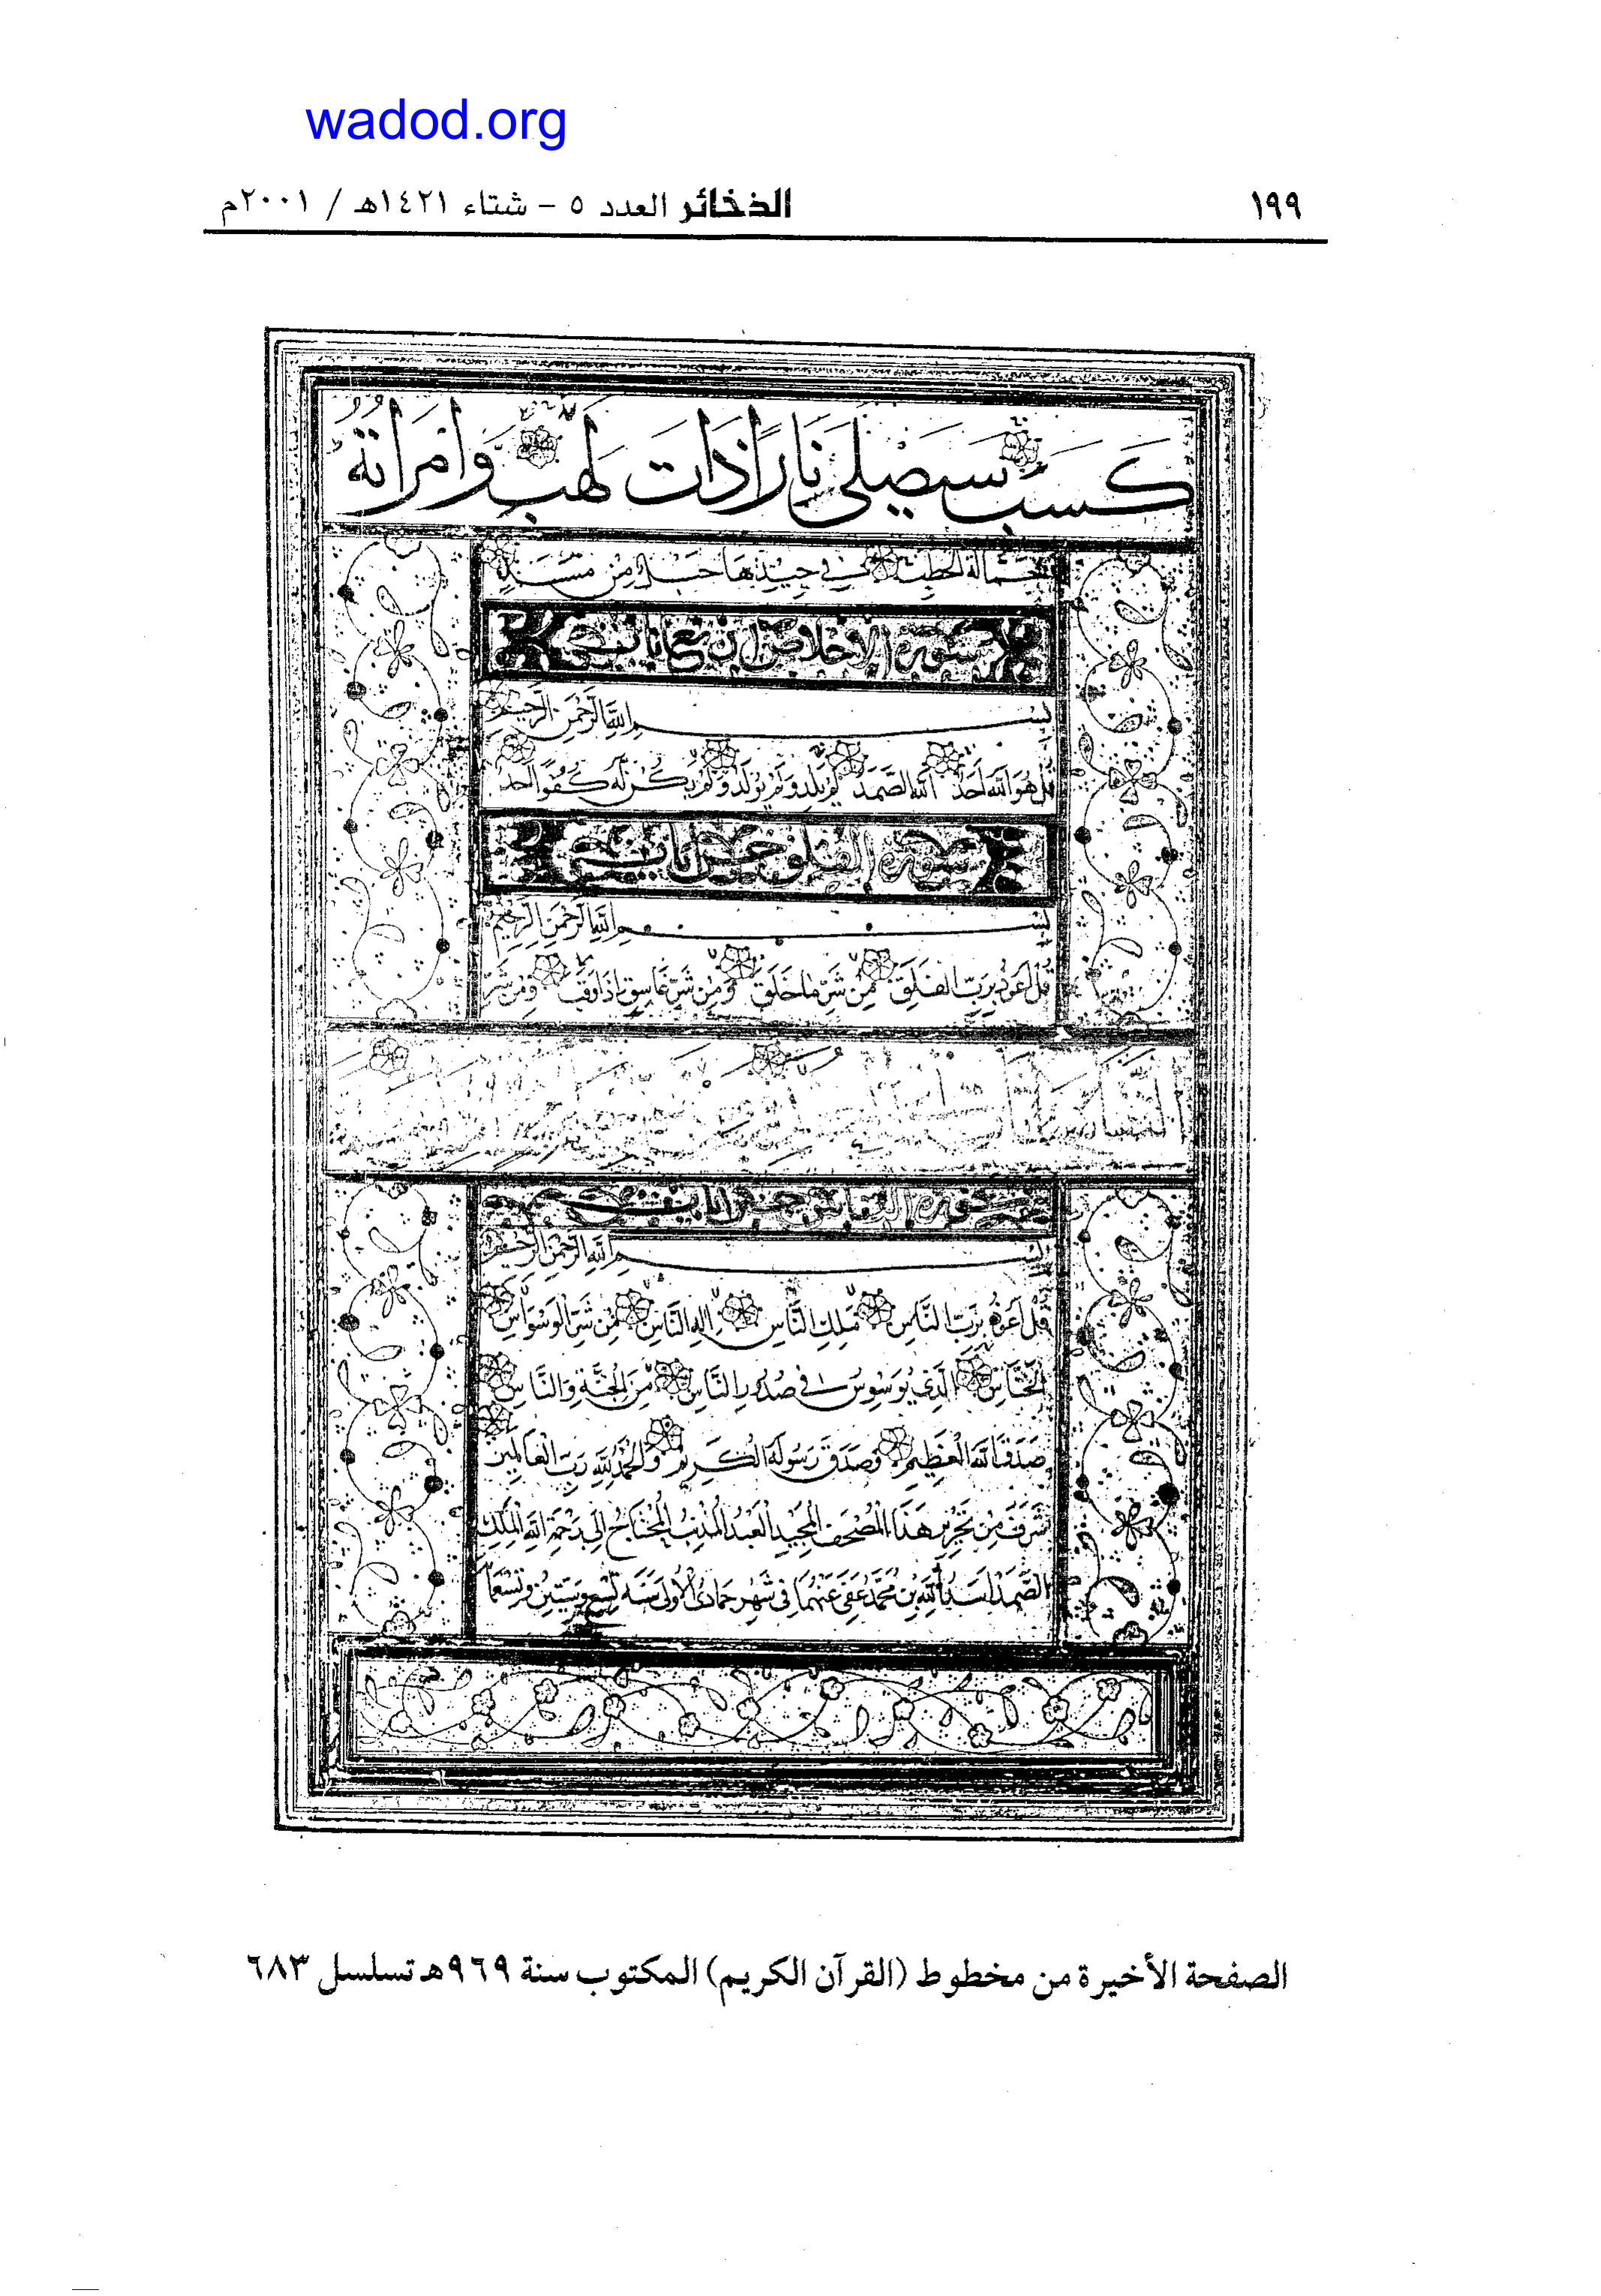 wadod.org
١٩٩ الذخائر العدد ٥ - شتاء ١٤٢١هـ / ٢٠٠١م
كسب سيصلى نارا ذات لهب وامرأته
حمالة الحطب في جيدها حبل من مسد
سورة الإخلاص اربع ايات
بسم الله الرحمن الرحيم
قل هو الله احد الله الصمد لم يلد ولم يولد ولم يكن له كفوا احد
سورة الفلق خمس ايات
بسم الله الرحمن الرحيم
قل اعوذ برب الفلق من شر ما خلق ومن شر غاسق اذا وقب ومن شر
سورة الناس
بسم الله الرحمن الرحيم
قل اعوذ برب الناس ملك الناس اله الناس من شر الوسواس
الخناس الذي يوسوس في صدور الناس من الجنة والناس
صدق الله العظيم وصدق رسوله الكريم والحمد لله رب العالمين
تشرف من تحرير هذا المصحف المجيد العبد المذنب المحتاج الى رحمة الله الملك
الصمد اسد الله بن محمد عفى عنهما في شهر جمادى الأولى سنه تسع وستين وتسعمائة
الصفحة الأخيرة من مخطوط (القرآن الكريم) المكتوب سنة ٩٦٩هـ تسلسل ٦٨٣